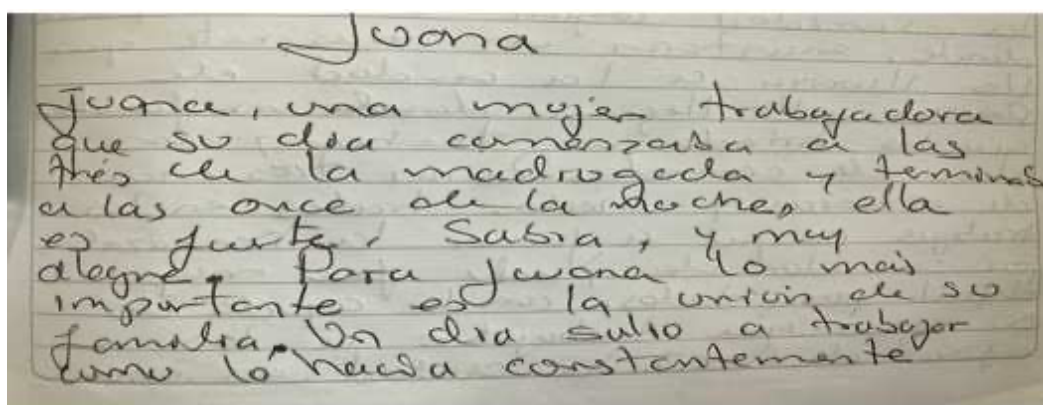 Juana
Juana, una mujer trabajadora
que su dia comenzaba a las
tres de la madrugada y terminab
a las once de la noche, ella
es fuerte, Sabia, y muy
alegre. Para Juana lo mas
importante es la union de su
familia. Un dia salio a trabajar
como lo hacia constantemente